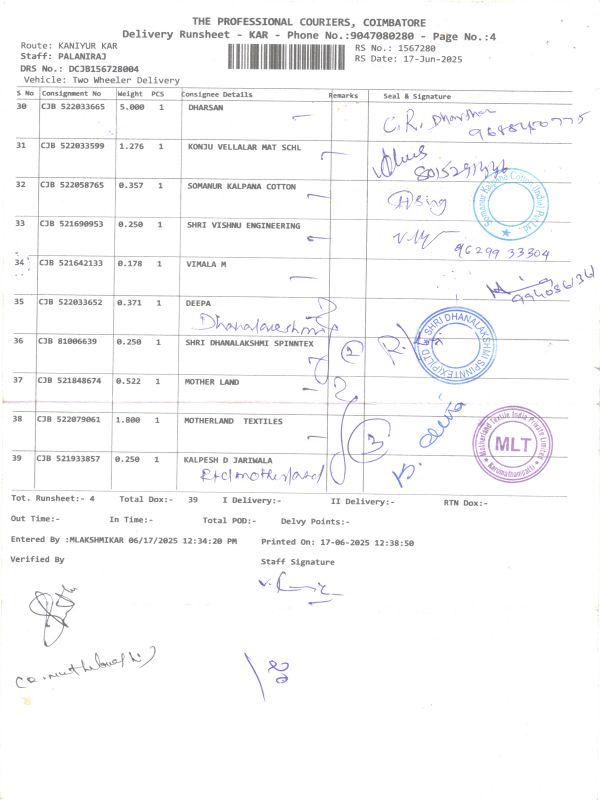 THE PROFESSIONAL COURIERS, COIMBATORE
Delivery Runsheet - KAR - Phone No.:9047080280 - Page No.:4
Route: KANIYUR KAR
Staff: PALANIRAJ
DRS No.: DCJB156728004
Vehicle: Two Wheeler Delivery
RS No.: 1567280
RS Date: 17-Jun-2025
S No Consignment No Weight PCS Consignee Details Remarks Seal & Signature
30 CJB 522033665 5.000 1 DHARSAN
C.R. Dharshan
31 CJB 522033599 1.276 1 KONJU VELLALAR MAT SCHL
32 CJB 522058765 0.357 1 SOMANUR KALPANA COTTON
Somanur Kalpana Cotton (India) Pvt Ltd.
33 CJB 521690953 0.250 1 SHRI VISHNU ENGINEERING
96299 33304
34 CJB 521642133 0.178 1 VIMALA M
35 CJB 522033652 0.371 1 DEEPA
Dhanalakshmi
36 CJB 81006639 0.250 1 SHRI DHANALAKSHMI SPINNTEX
2
SHRI DHANALAKSHMI SPINNTEX(P)LTD
37 CJB 521848674 0.522 1 MOTHER LAND
38 CJB 522079061 1.800 1 MOTHERLAND TEXTILES
3
Motherland Textile India Private Limited
MLT
Karumathampatti
39 CJB 521933857 0.250 1 KALPESH D JARIWALA
motherland
Tot. Runsheet:- 4 Total Dox:- 39 I Delivery:- II Delivery:- RTN Dox:-
Out Time:- In Time:- Total POD:- Delvy Points:-
Entered By :MLAKSHMIKAR 06/17/2025 12:34:20 PM Printed On: 17-06-2025 12:38:50
Verified By Staff Signature